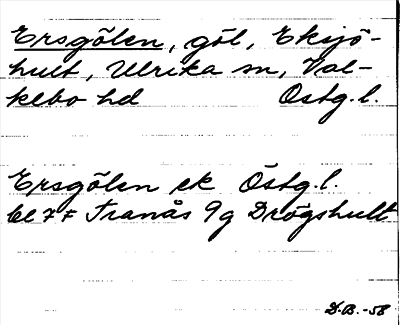 Ersgölen, göl, Eksjö-
hult, Ulrika sn, Val-
kebo hd Östg. l.
Ersgölen ek Östg. l.
bl 7 F Tranås 9g Drögshult
D.B. -58